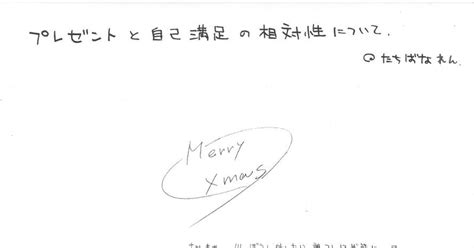 プレゼントと自己満足の相対性について.
@たちばなれん.
Merry
Xmas